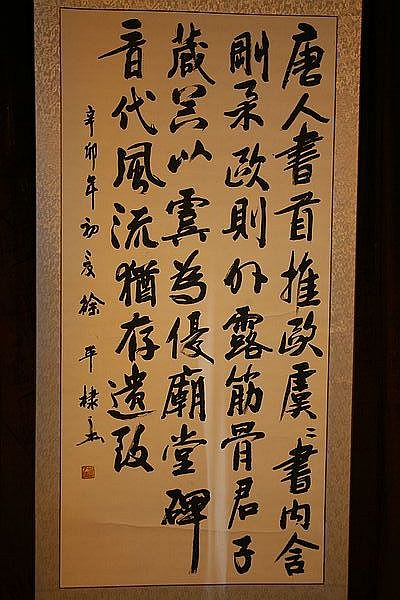 唐人書首推歐虞〻書内含
剛柔歐則外露筋骨君子
藏器以虞為優廟堂碑
晋代風流猶存遺致
辛卯年初夏徐平棣书